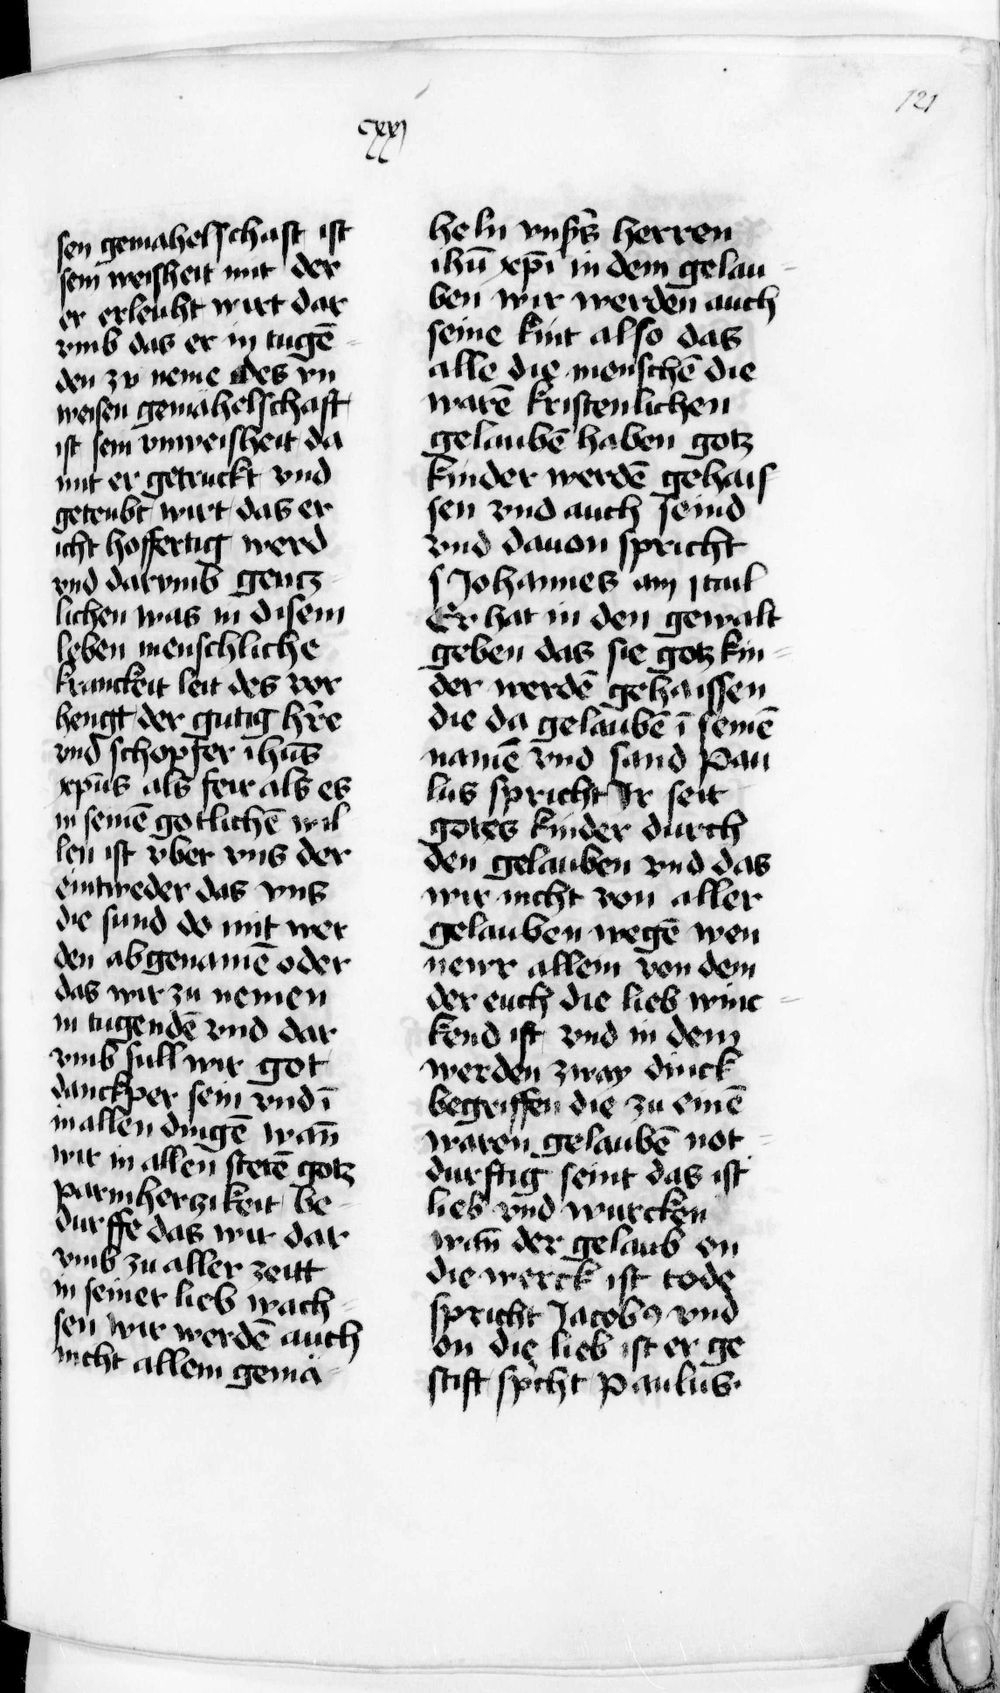 121
cxxj
sen gemahelschaft ist
sein weisheit mit der
er erleuht wirt dar
vmb das er in tugē-
den zu neme des vn
weisen gemahelschaft
ist sein vnweisheit da
mit er getruckt vnd
geteubt wirt das er
icht hoffertig werd
vnd darvmb gentz-
lichen was in disem
leben menschliche
kranckeit leit des ver
hengt der gutig hr̄e
vnd schopfer ihūs
xp̄us als feir als es
in seinē gotlichē wil
len ist vber vns der
eintweder das vns
die sund do mit wer
den abgenamē oder
das wir zu nemen
in tugendē vnd dar
vmb sull wir got
danckper sein vnd ī
in allen dingē wañ
wir in allen stetē gotz
parmherzikeit be-
durffe das wir dar
vmb zu aller zeitt
in seiner lieb wach-
sen wir werdē auch
nicht allein gemā-
heln vnsr̄s herren
ihū xp̄i in dem gelau-
ben wir werden auch
seine kint also das
alle die menschē die
warē kristenlichen
gelaubē haben gotz
kinder werdē gehais
sen vnd auch seind
vnd dauon spricht
s Johannes am j caul
Er hat in den gewalt
geben das sie gotz kin-
der werdē gehaissen
die da gelaubē ī seinē
namē vnd sand Pau
lus spricht Ir seit
gotes kinder durch
den gelauben vnd das
wir nicht von aller
gelauben wegē wen
newr allein von dem
der euch die lieb wurc-
kend ist vnd in dem
werden zway dinck
begriffen die zu einē
waren gelaubē not-
durftig seint das ist
lieb vnd wurcken
wañ der gelaub on
die werck ist tode
spricht Jacobꝰ vnd
on die lieb ist er ge
stift spr̄cht Paulus.